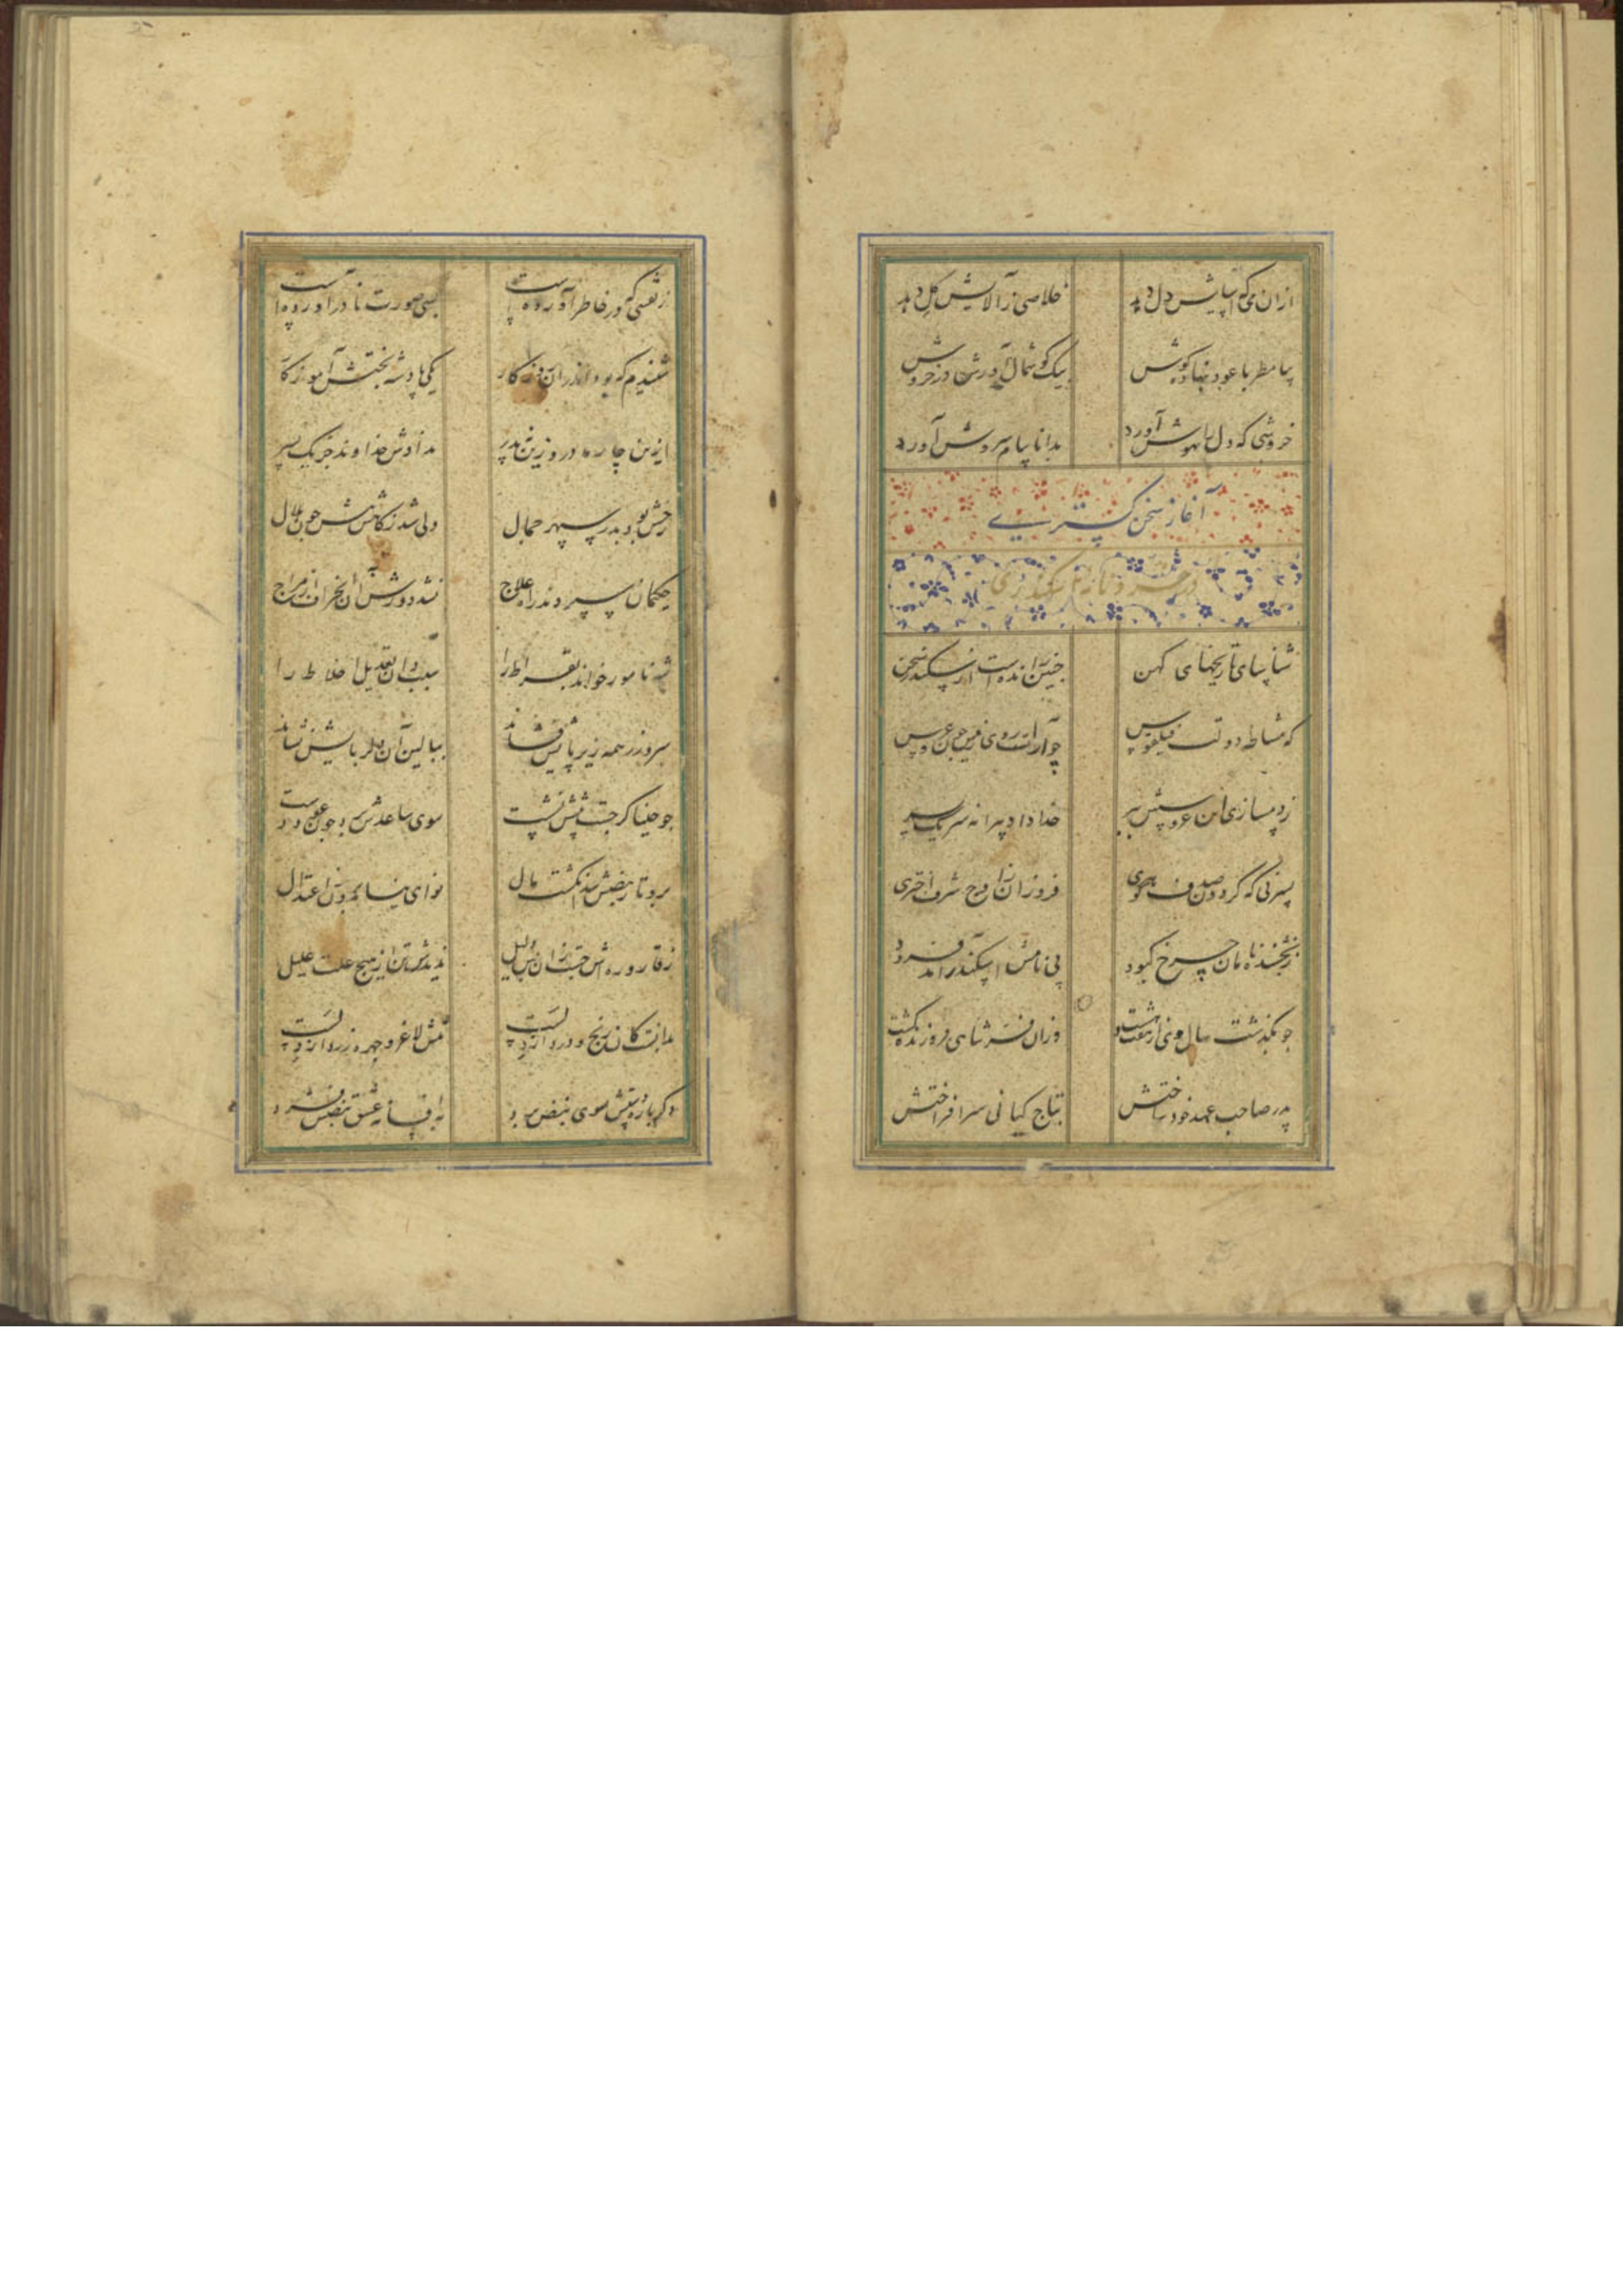 ازان می که آسایش دل دهد خلاصی ز آلایش گل دهد
بیا مطربا عود بنهاده گوش بیک گوشمال آورش در خروش
خروشی که دل را بهوش آورد بدانا پیام سروش آورد
آغاز سخن گستری
در خردنامه اسکندری
شناسای تاریخهای کهن چنین رانده است از سکندر سخن
که مشاطه دولت فیلقوس چو آراست روی زمین چون عروس
ز دمسازی این عروسش ببر خدا داد پیرانه سر یک پسر
پسر نی که گردون صدف گوهری فروزان ز اوج شرف اختری
کبود پی نامش اسکندر آمد فرود
چو بگذشت سال وی از هفت و هشت وزان فر شاهی فروزنده گشت
پدر صاحب عهد خود ساختش بتاج کیانی سر افراختش
ز نقشی که در خاطر آورده است بسی صورت نادر آورده است
شنیدم که بود اندران روزگار یکی پادشه بختش آموزگار
ازین چار مادر وزین نه پدر ندادش خداوند جز یک پسر
رخش بود بدر سپهر جمال ولی شد ز کاهش تنش چون هلال
حکیمان سپردند راه علاج نشد دورش آن انحراف از مزاج
شه نامور خواند بقراط را سبب دان تعدیل اخلاط را
سر و زر همه زیر پایش فشاند ببالین آن دلربایش نشاند
چو حیناگر جست پیشش نشست سوی ساعدش برد چون عود دست
برو تار نبضش شد انگشت مال نوای نیامد برون ز اعتدال
ز قاروره اش جست ازان پس دلیل ندیدش تن از هیچ علت علیل
بدانست کان رنج و درد از دلست تنش لاغر و چهره زرد از دلست
دگر باره دستش سوی نبض برد به افسانه عشق نبضش فشرد